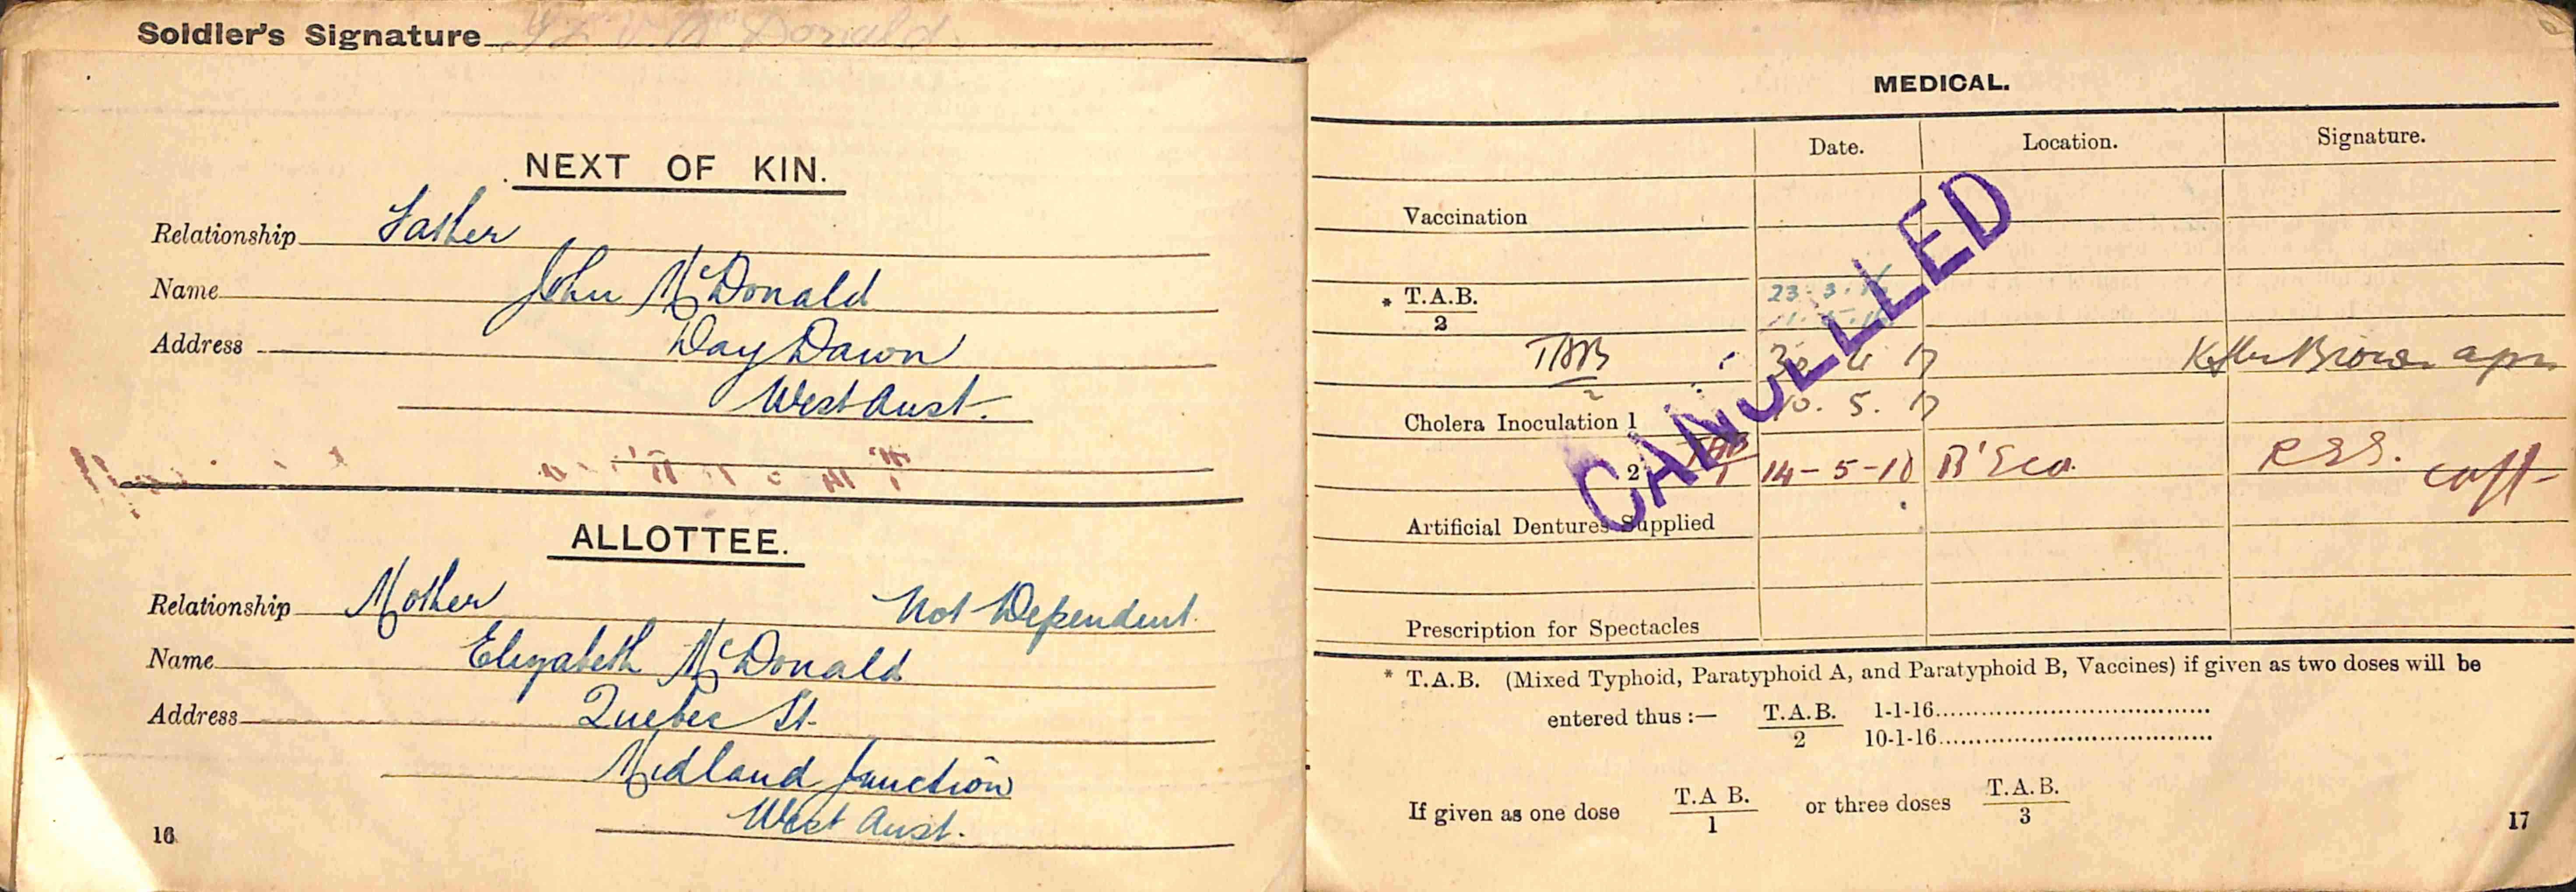 Soldier's Signature McDonald
NEXT OF KIN.
Relationship Father
Name John McDonald
Address Day Dawn
West Aust.
ALLOTTEE.
Relationship Mother Not Dependent
Name Elizabeth McDonald
Address Quebec St
Midland Junction
West Aust.
16
MEDICAL.
Date. Location. Signature.
Vaccination
* T.A.B. 23-3-
2
TAB 4 17 Brown
2
Cholera Inoculation 1 10. 5. 17
2 TAB 14-5-18 R.S.S. Capt
1
Artificial Dentures Supplied
Prescription for Spectacles
CANCELLED
* T.A.B. (Mixed Typhoid, Paratyphoid A, and Paratyphoid B, Vaccines) if given as two doses will be
entered thus :— T.A.B. 1-1-16
2 10-1-16
If given as one dose T.A B. or three doses T.A.B.
1 3
17